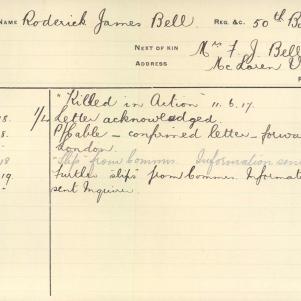 NAME Roderick James Bell REG. &c. 50th B
NEXT OF KIN Mrs F. J. Bell
ADDRESS McLaren V
"Killed in Action" 11.6.17.
18. 1/4 Letter acknowledged.
8. P/Cable – confirmed letter – forwa
London.
18 "Slip" from Comms. Information sen
19. Further "slips" from Commn. Informat
sent Inquirer.